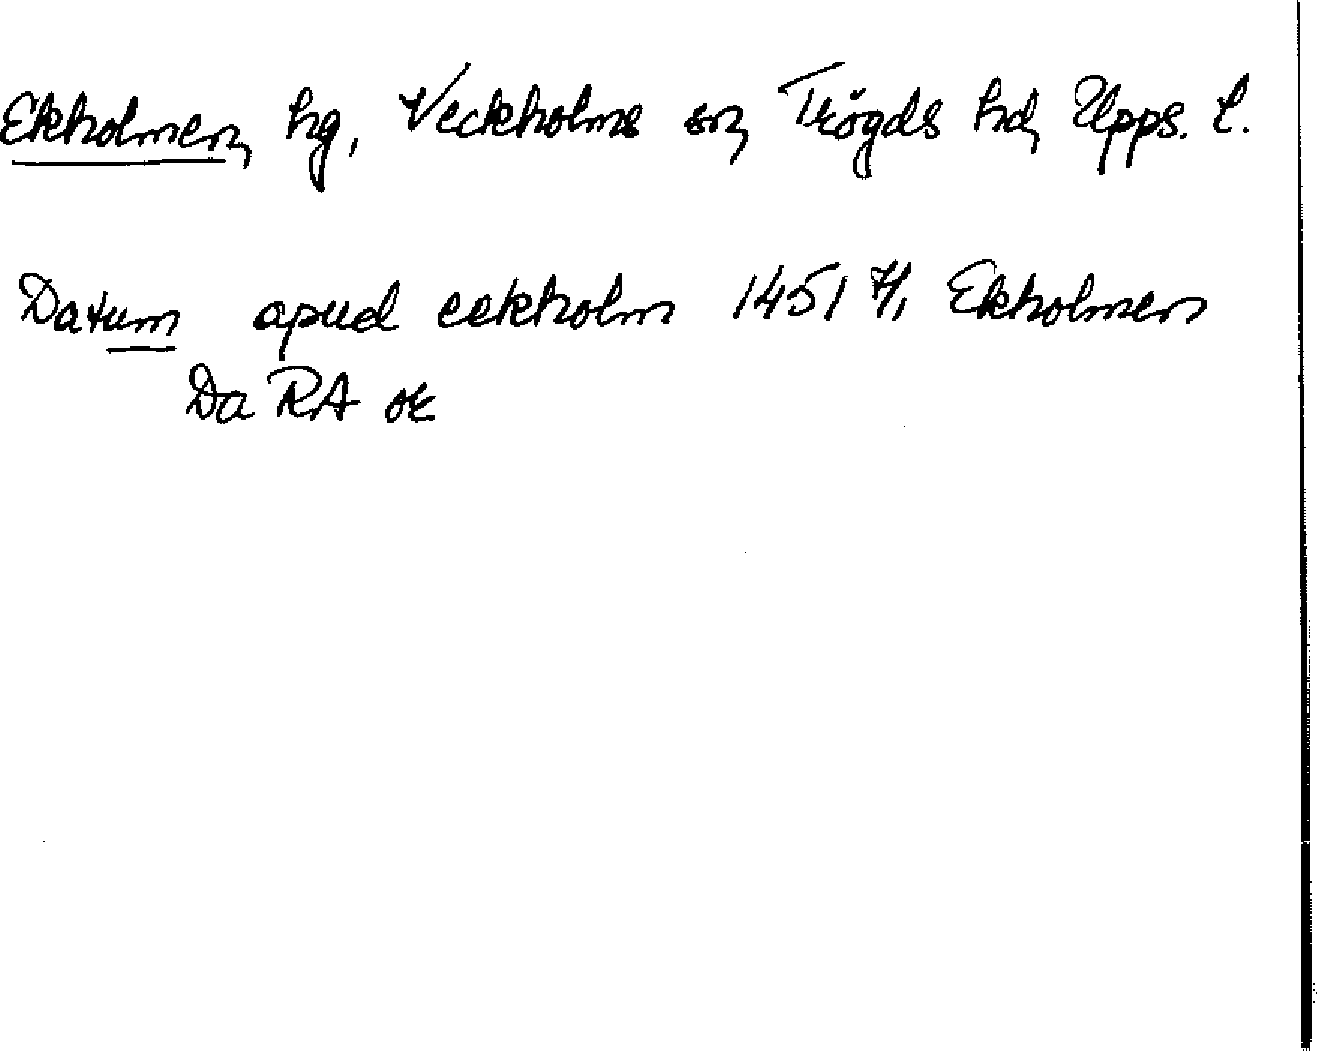 Ekholmen, hg, Veckholms sn, Trögds hd, Upps. l.
Datum apud eekholm 1451 7/1 Ekholmen
Da RA or